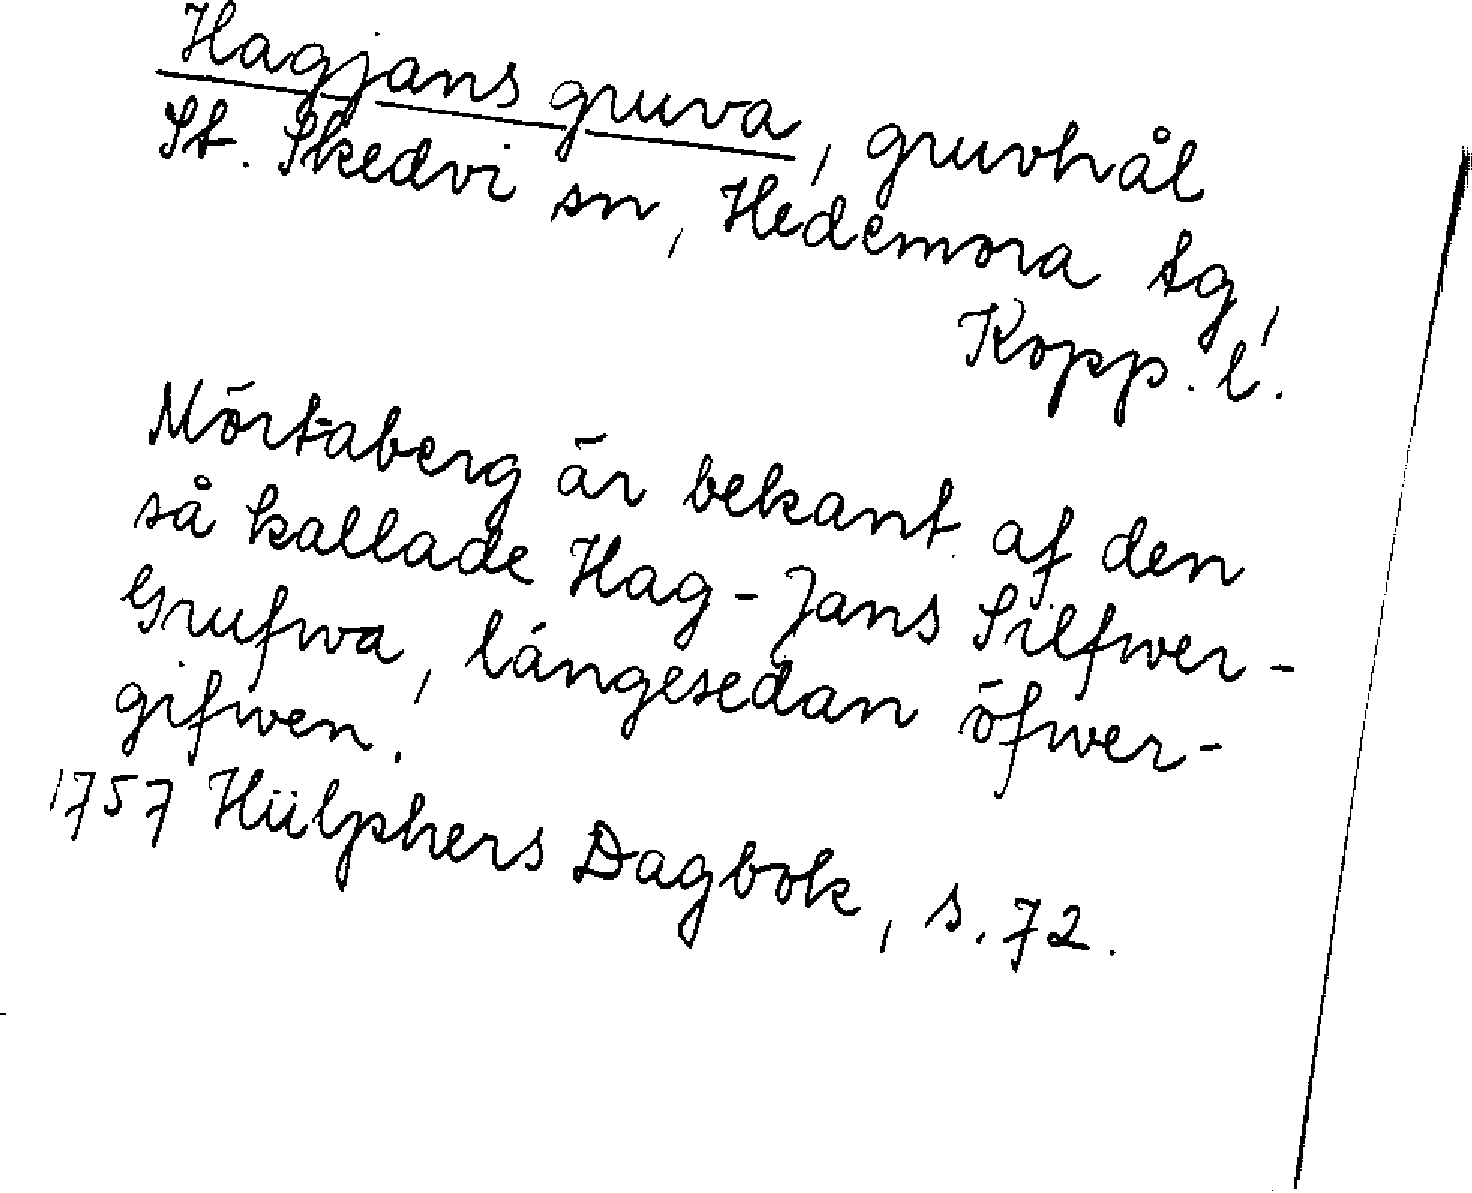 Hagjans gruva, gruvhål
St. Skedvi sn, Hedemora tg,
Kopp. l.
Mörtaberg är bekant af den
så kallade Hag-Jans Silfwer-
Grufwa, långesedan öfwer-
gifwen.
1757 Hülphers Dagbok, s. 72.